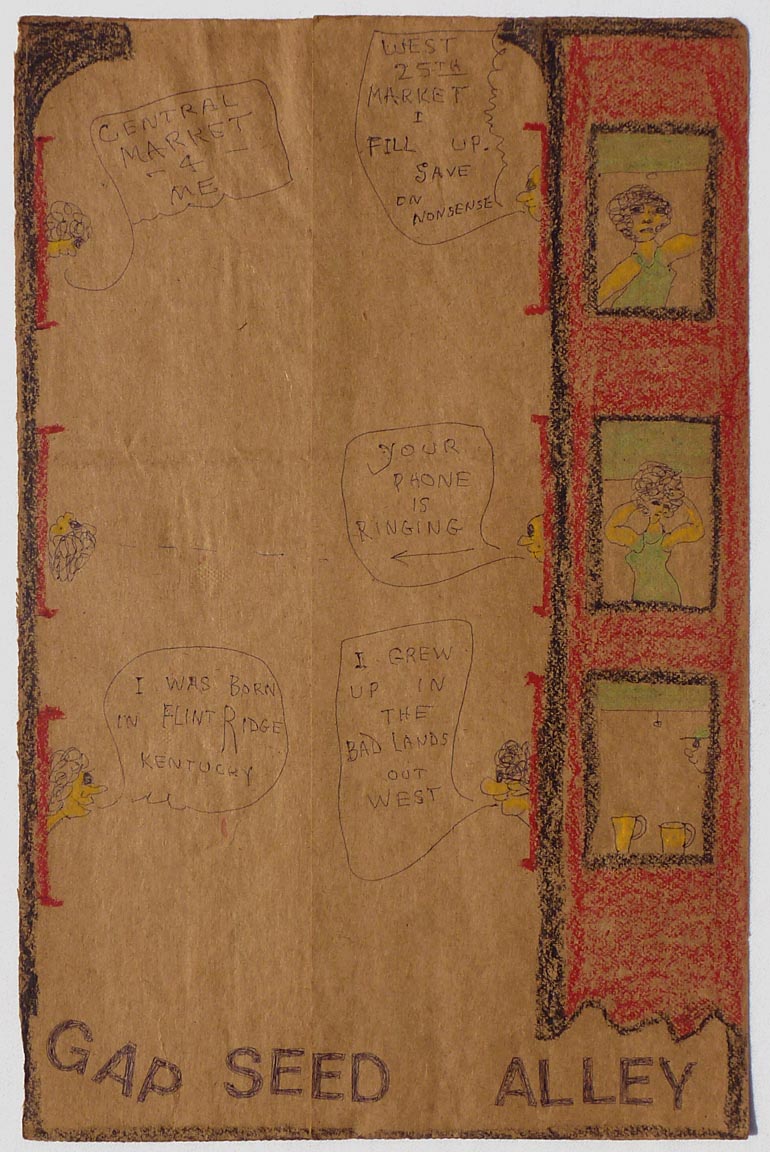 CENTRAL
MARKET
- 4 -
ME
WEST
25TH
MARKET
I
FILL UP.
SAVE
ON
NONSENSE
YOUR
PHONE
IS
RINGING
I WAS BORN
IN FLINT RIDGE
KENTUCKY
I GREW
UP IN
THE
BAD LANDS
OUT
WEST
GAP SEED ALLEY